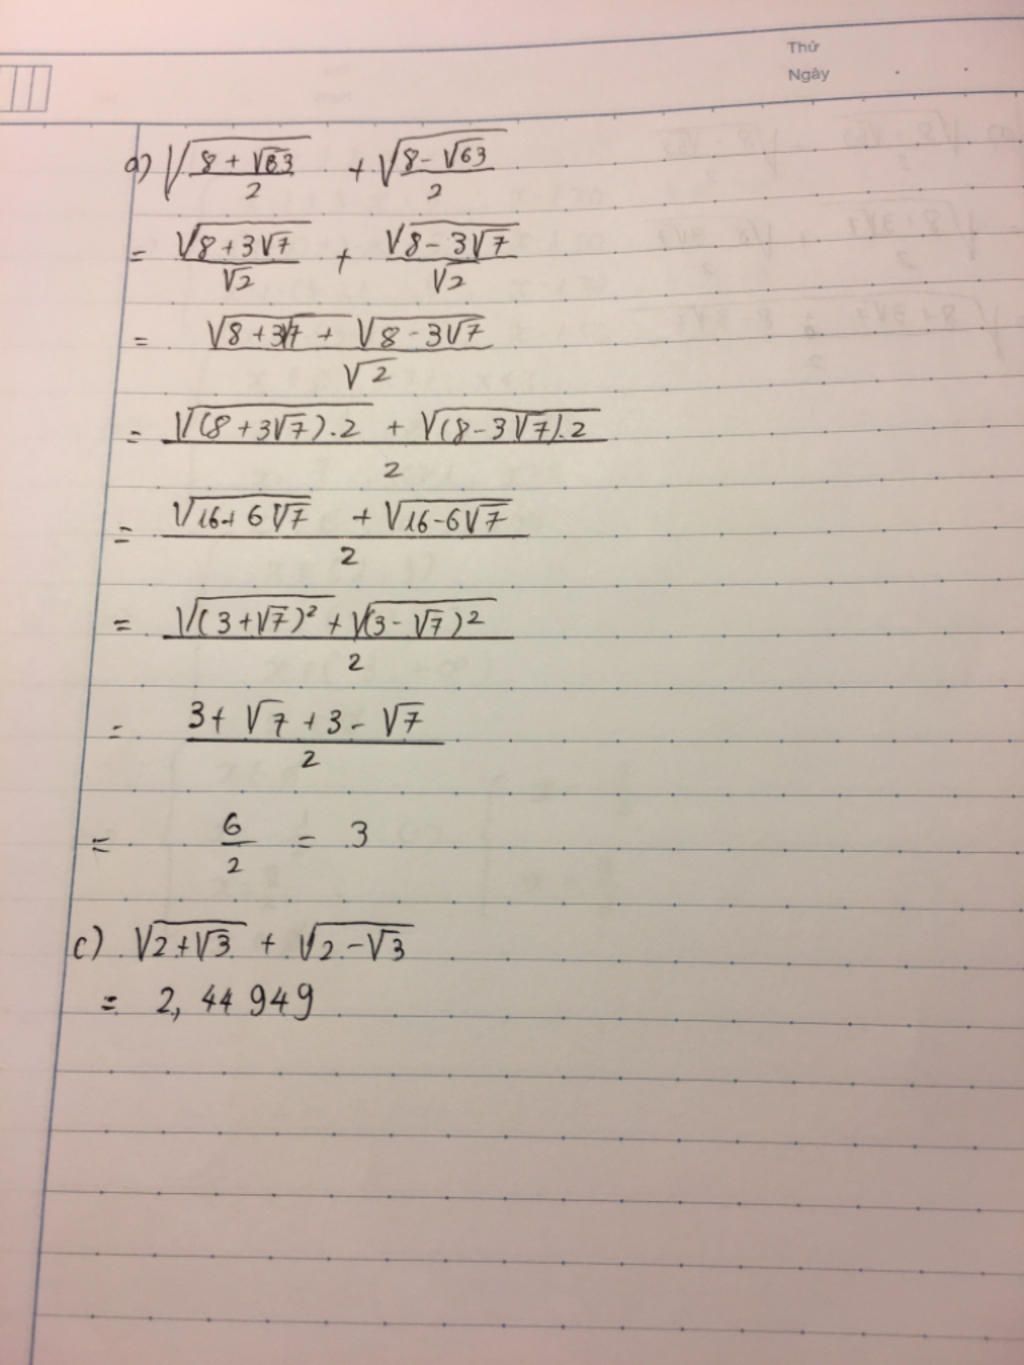 Thứ
Ngày
a) √((8 + √63)/2) + √((8 - √63)/2)
= √(8 + 3√7)/√2 + √(8 - 3√7)/√2
= (√(8 + 3√7) + √(8 - 3√7))/√2
= (√((8 + 3√7).2) + √((8 - 3√7).2))/2
= (√(16 + 6√7) + √(16 - 6√7))/2
= (√((3 + √7)²) + √((3 - √7)²))/2
= (3 + √7 + 3 - √7)/2
= 6/2 = 3
c) √(2 + √3) + √(2 - √3)
= 2,44 949